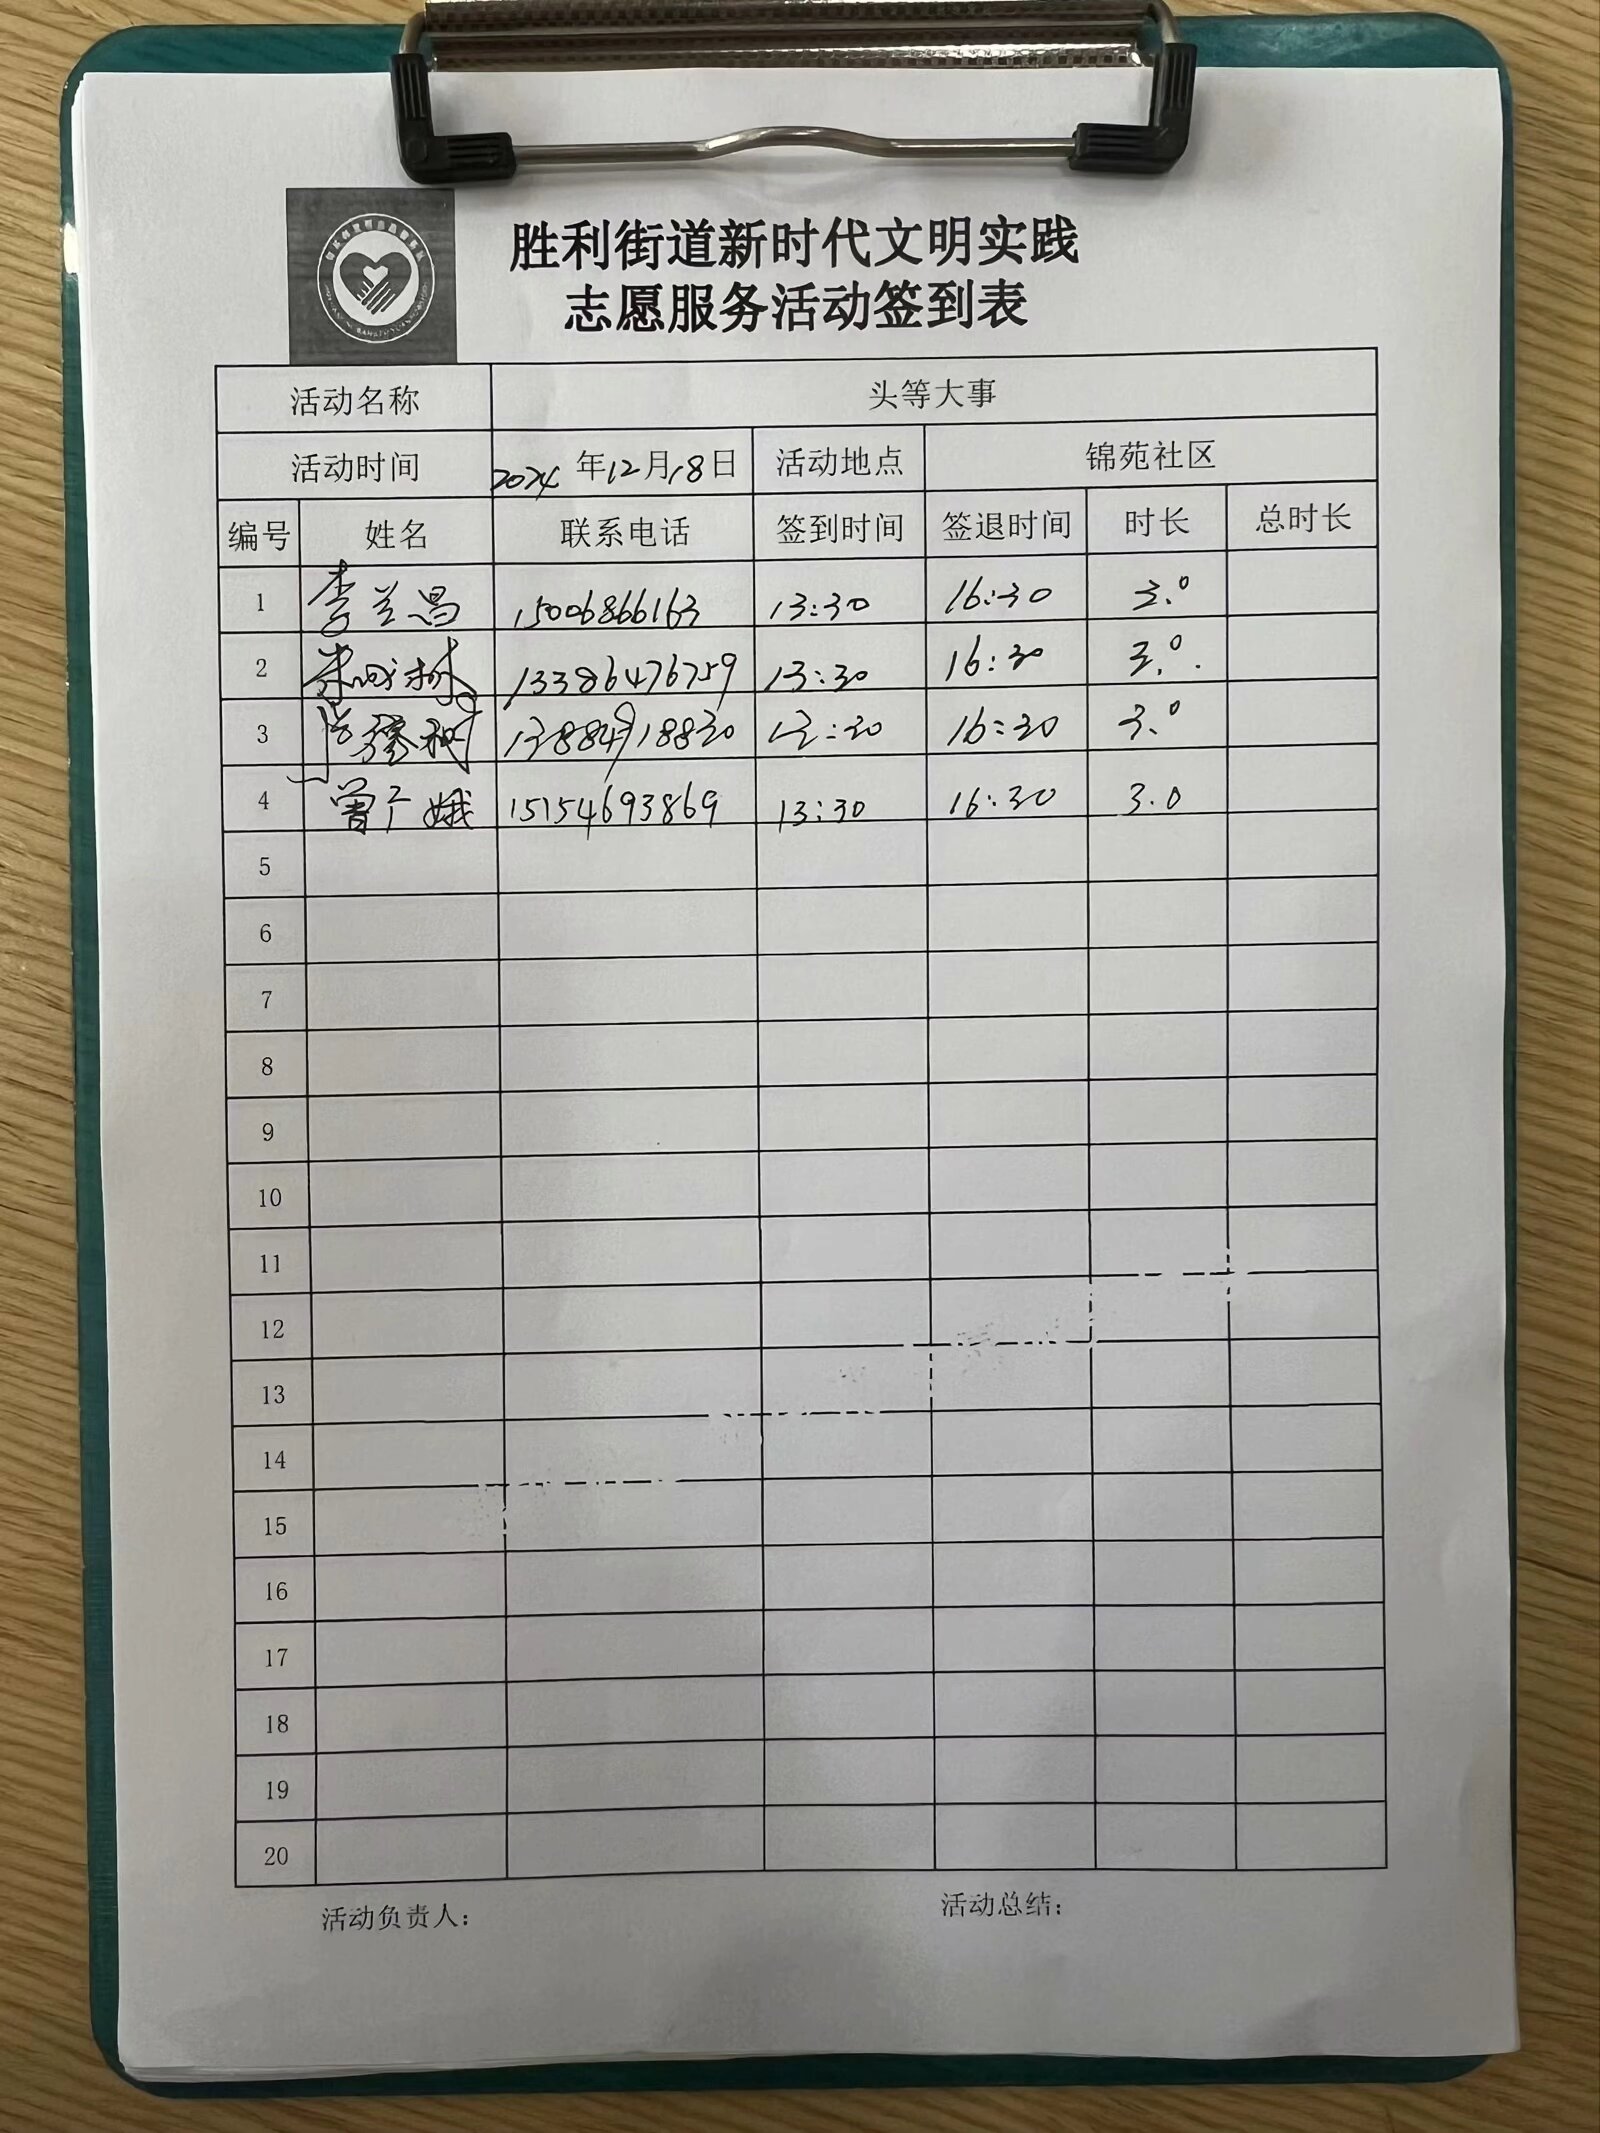 胜利街道新时代文明实践
志愿服务活动签到表
活动名称 头等大事
活动时间 2024年12月18日 活动地点 锦苑社区
编号 姓名 联系电话 签到时间 签退时间 时长 总时长
1 李兰昌 15006866163 13:30 16:30 3.0
2 13386476759 13:30 16:30 3.0.
3 13884918830 13:30 16:30 3.0
4 曾广娥 15154693869 13:30 16:30 3.0
5
6
7
8
9
10
11
12
13
14
15
16
17
18
19
20
活动负责人： 活动总结：